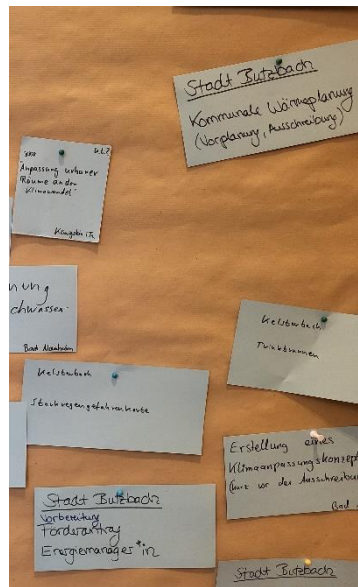 Stadt Butzbach
Kommunale Wärmeplanung
(Vorplanung, Ausschreibung)
"Anpassung urbaner
Räume an den
Klimawandel"
Königstein i.Ts
nung
chwasser-
Bad Nauheim
Kelsterbach
Trinkbrunnen
Kelsterbach
Starkregengefahrenkarte
Erstellung eines
Klimaanpassungskonzept
(kurz vor der Ausschreibun
Bad
Stadt Butzbach
Vorbereitung
Förderantrag
Energiemanager*in
Stadt Butzbach